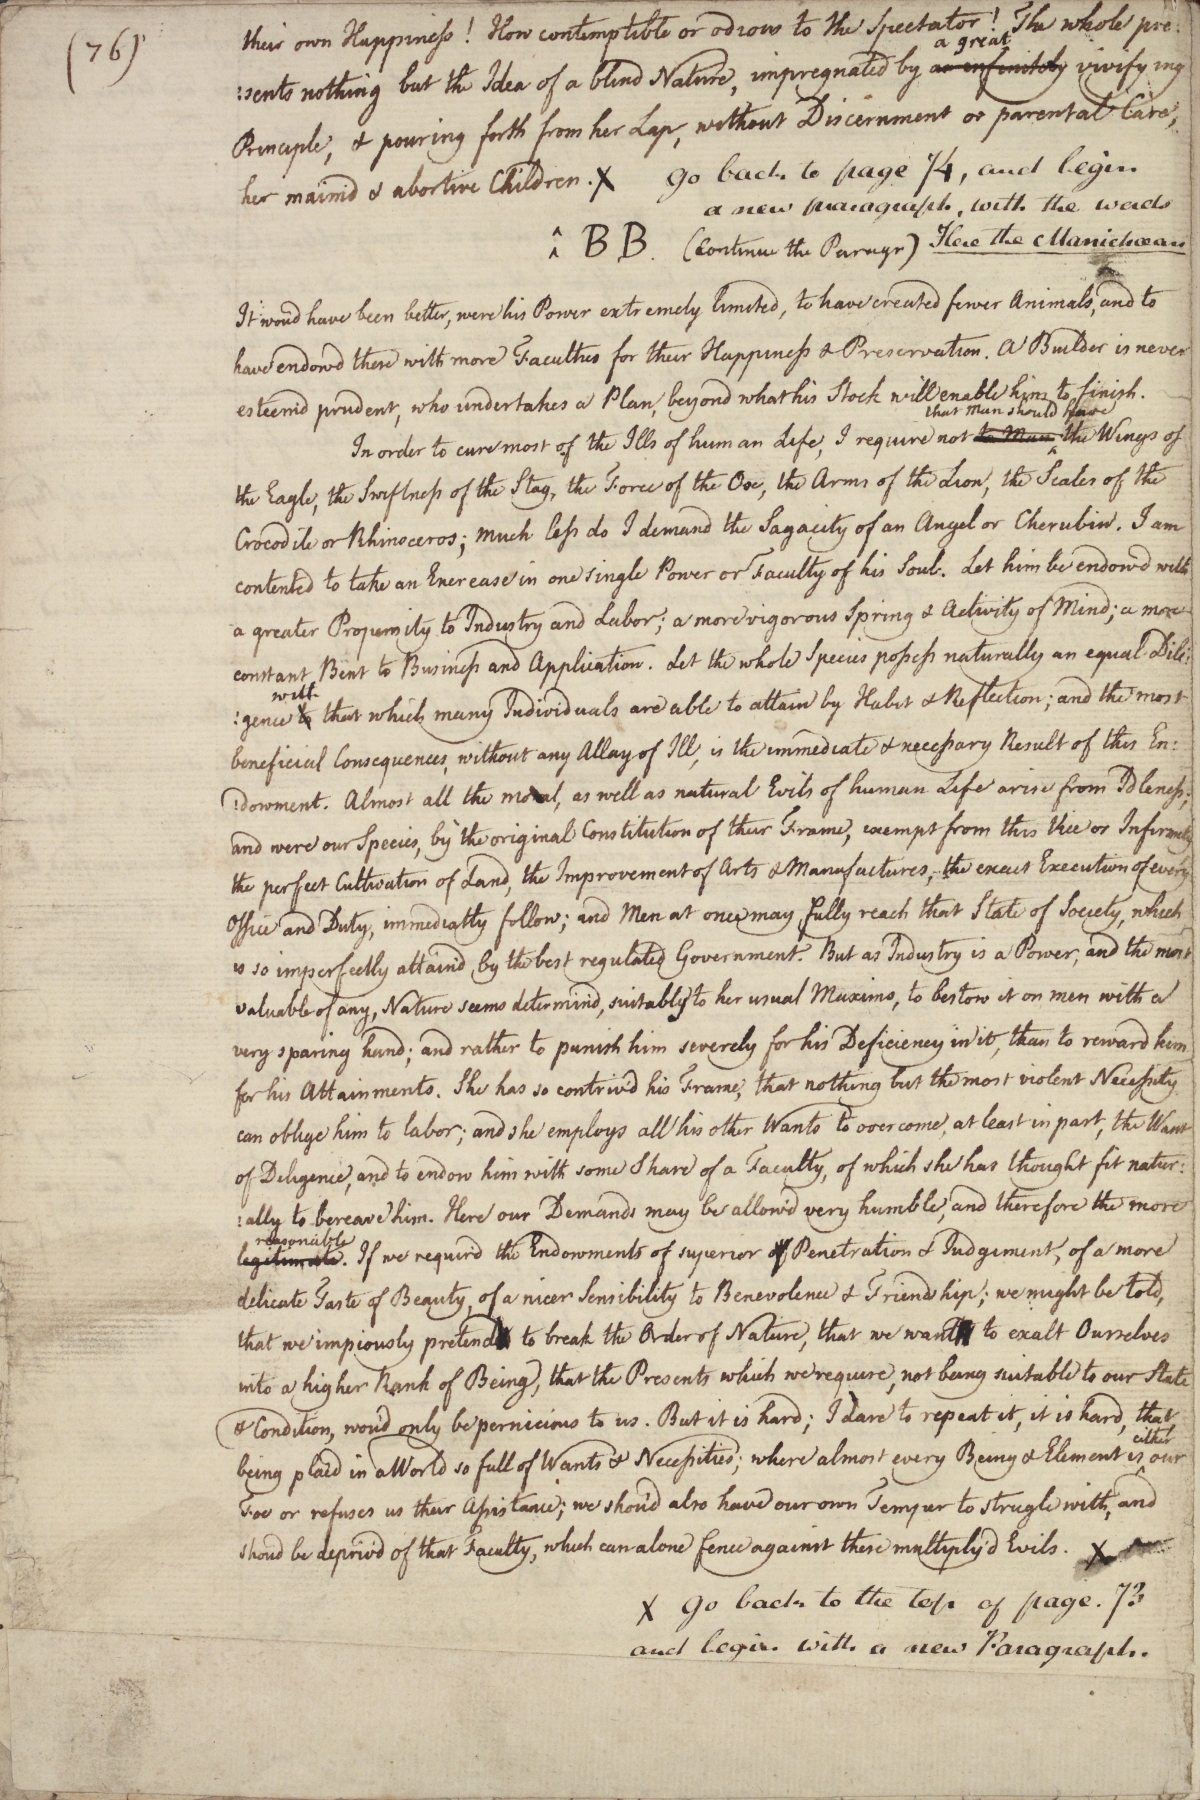 (76)
their own Happiness! How contemptible or odious to the Spectator! The whole pre:
a great
:sents nothing but the Idea of a blind Nature, impregnated by an infinitely vivifying
Principle, & pouring forth from her Lap, without Discernment or parental Care,
her maim'd & abortive Children. X go back to page 74, and begin
a new paragraph, with the words
BB. (Continue the Paragr) Here the Manichæan
It woud have been better, were his Power extremely limited, to have created fewer Animals, and to
have endowd these with more Faculties for their Happiness & Preservation. A Builder is never
esteem'd prudent, who undertakes a Plan, beyond what his Stock will enable him to finish.
that Man should have
In order to cure most of the Ills of human Life, I require not to Man the Wings of
the Eagle, the Swiftness of the Stag, the Force of the Ox, the Arms of the Lion, the Scales of the
Crocodile or Rhinoceros; much less do I demand the Sagacity of an Angel or Cherubin. I am
contented to take an Encrease in one single Power or Faculty of his Soul. Let him be endow'd with
a greater Propensity to Industry and Labor; a more vigorous Spring & Activity of Mind; a more
constant Bent to Business and Application. Let the whole Species possess naturally an equal Dili:
with
:gence to that which many Individuals are able to attain by Habit & Reflection; and the most
beneficial Consequences, without any Allay of Ill, is the immediate & necessary Result of this En:
:dowment. Almost all the moral, as well as natural Evils of human Life arise from Idleness;
and were our Species, by the original Constitution of their Frame, exempt from this Vice or Infirmity,
the perfect Cultivation of Land, the Improvement of Arts & Manufactures, the exact Execution of every
Office and Duty, immediatly follow; and Men at once may fully reach that State of Society, which
is so imperfectly attain'd by the best regulated Government. But as Industry is a Power, and the most
valuable of any, Nature seems determind, suitably to her usual Maxims, to bestow it on men with a
very sparing hand; and rather to punish him severely for his Deficiency in it, than to reward him
for his Attainments. She has so contriv'd his Frame, that nothing but the most violent Necessity
can oblige him to labor; and she employs all his other Wants to overcome, at least in part, the Want
of Diligence, and to endow him with some Share of a Faculty, of which she has thought fit natur:
:ally to bereave him. Here our Demands may be allow'd very humble, and therefore the more
reasonable
legitimate. If we requird the Endowments of superior Penetration & Judgement, of a more
delicate Taste of Beauty, of a nicer Sensibility to Benevolence & Friendship; we might be told,
that we impiously pretend to break the Order of Nature, that we want to exalt Ourselves
into a higher Rank of Being, that the Presents which we require, not being suitable to our State
& Condition, woud only be pernicious to us. But it is hard; I dare to repeat it, it is hard, that
either
being plac'd in a World so full of Wants & Necessities; where almost every Being & Element is our
Foe or refuses us their Assistance; we shou'd also have our own Temper to strugle with, and
shoud be depriv'd of that Faculty, which can alone fence against these multiply'd Evils. X
X go back to the top of page. 73
and begin with a new Paragraph.